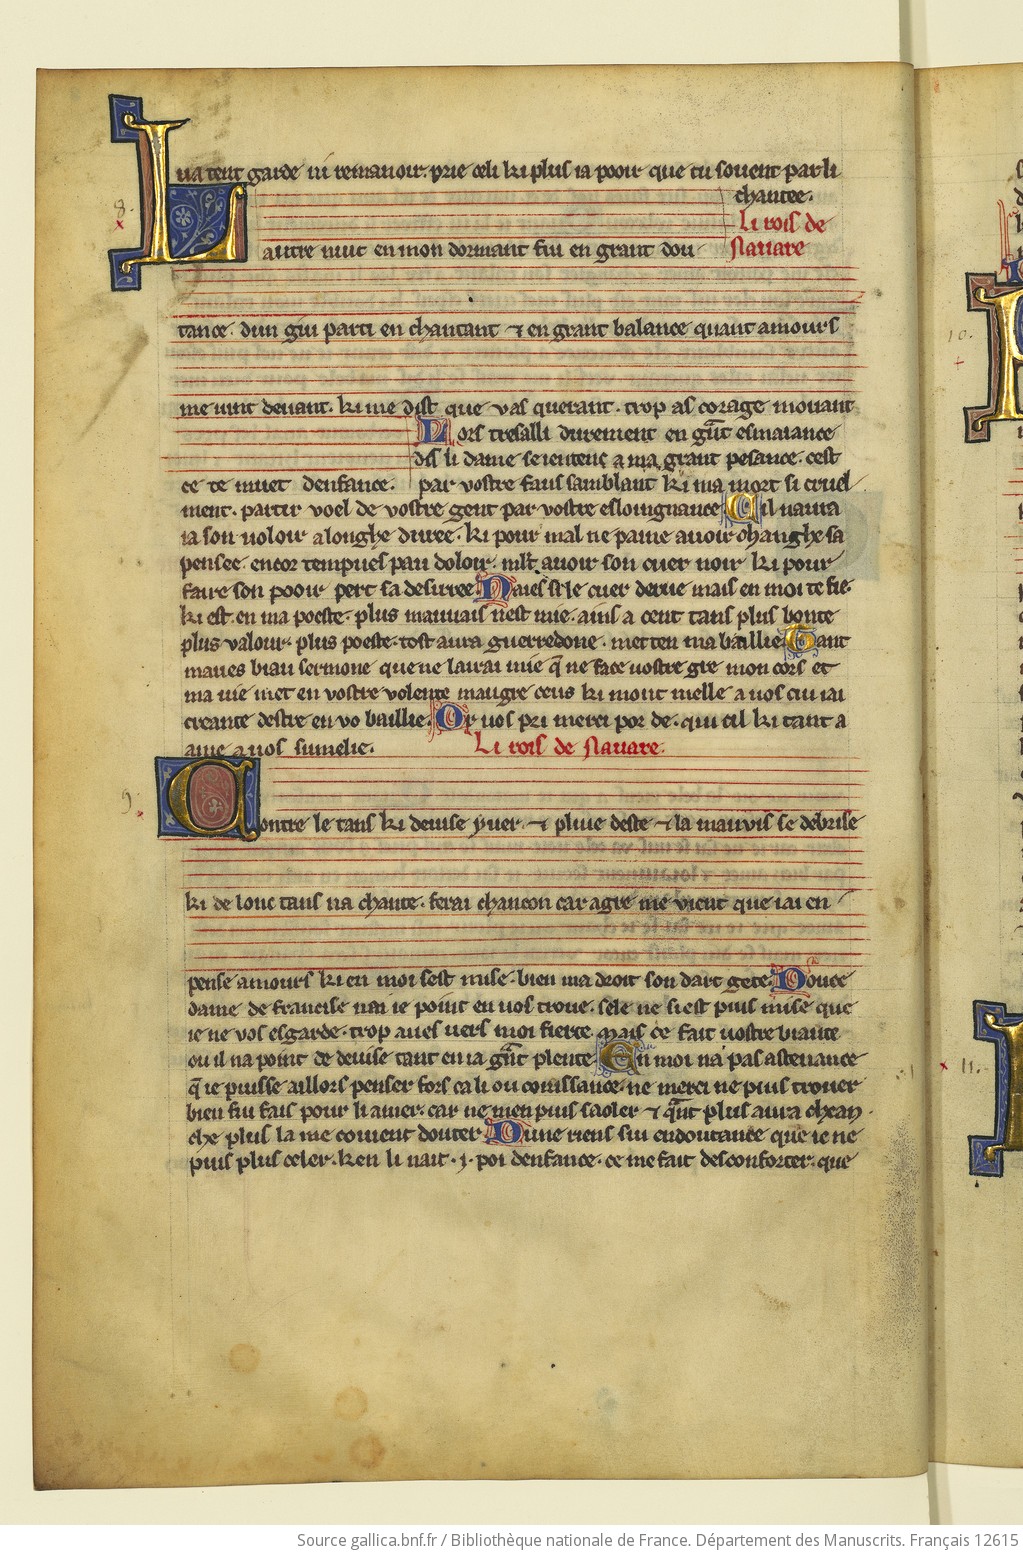 ua tent garde ni remanoir. prie celi ki plus ia pooir que tu souent par li
chantee.
Li rois de
Nauare
8.
Lautre nuit en mon dormant fui en grant dou
tance. dun giu parti en chantant ⁊ en grant balance quant amours
me uint deuant. ki me dist que vas querant. trop as corage mouant
Lors tresalli durement en gnt esmaiance
dis li dame se ientenc a ma grant pesance. cest
ce te muet denfance. par vostre faus samblant ki ma mort si cruel
ment. partir voel de vostre gent par vostre eslongnance Cil naura
ia son uoloir a longhe duree. ki pour mal ne paine auoir changhe sa
pensee. encor tempues pau doloir. mlt auoir son cuer noir ki pour
faire son pooir pert sa desirree Naies se le cuer derue mais en moi te fie.
ki est en ma poeste. plus mauuais nest mie. ains a cent tans plus bonte
plus valour. plus poeste. tost aura guerredone. met ten ma baillie Tant
maues biau sermone que ne lairai mie q ne face uostre gre mon cors et
ma uie met en vostre volente maugre ceus ki mont melle a uos ciu iai
creante destre en vo baillie. Or uos pri merci por de. qui cil ki tant a
ame a uos sumelie. Li rois de Nauare.
9.
Contre le tans ki deuise yuer ⁊ pluie deste ⁊ la mauuis se debrise
ki de lonc tans na chante. ferai chancon car a gre me vient que iai en
pense amours ki en moi sest mise. bien ma droit son dart gete Douce
dame de francise nai ie point en uos troue. sele ne si est puis mise que
ie ne vos esgarde. trop aues uers moi fierte mais ce fait uostre biaute
ou il na point de deuise tant en ia gnt plente En moi na pas astenance
q ie puisse aillors penser fors ca li ou conissance. ne merci ne puis trouer
bien fui fais pour li amer. car ne men puis saoler ⁊ qnt plus aura chean
che plus la me couient douter Dune riens sui en doutance que ie ne
puis plus celer. ken li nait .j. poi denfance. ce me fait desconforter. que
10.
11.
Source gallica.bnf.fr / Bibliothèque nationale de France. Département des Manuscrits. Français 12615